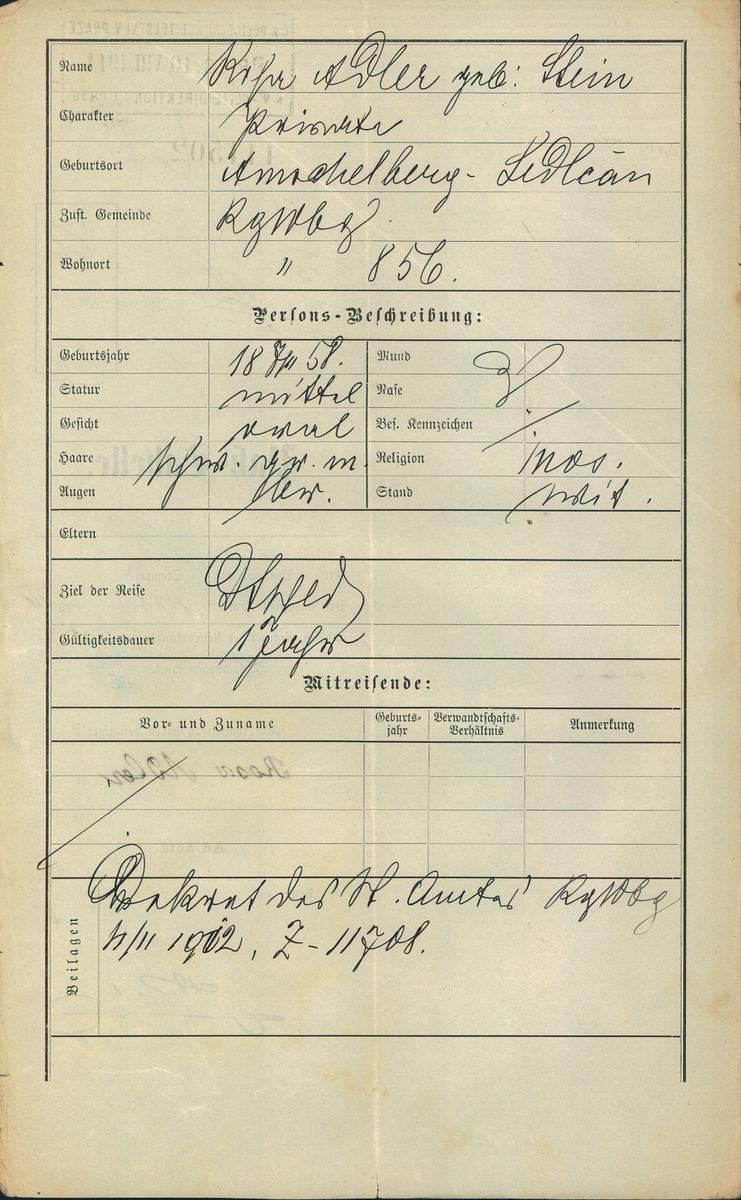 Name Rosa Adler geb: Stein
Charakter Private
Geburtsort Amschelberg - Sedlčan
Zust. Gemeinde KglWbg.
Wohnort " 856.
Persons-Beschreibung:
Geburtsjahr 18 58. Mund
Statur mittel Nase
Gesicht oval Bes. Kennzeichen /.
Haare schw. gr. m. Religion mos.
Augen Stand wit.
Eltern
Ziel der Reise Dtschld
Gültigkeitsdauer 1 Jahr
Mitreisende:
Vor- und Zuname Geburts-jahr Verwandtschafts-Verhältnis Anmerkung
Beilagen Dekret des St. Amtes KglWbg
1912, Z - 11708.